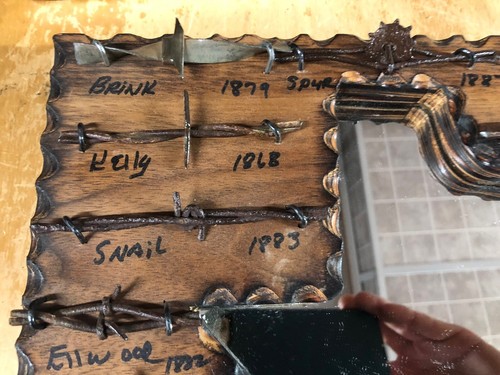 BRINK 1879 SPUR 188
Kelly 1868
SNAIL 1883
Ellwood 1882